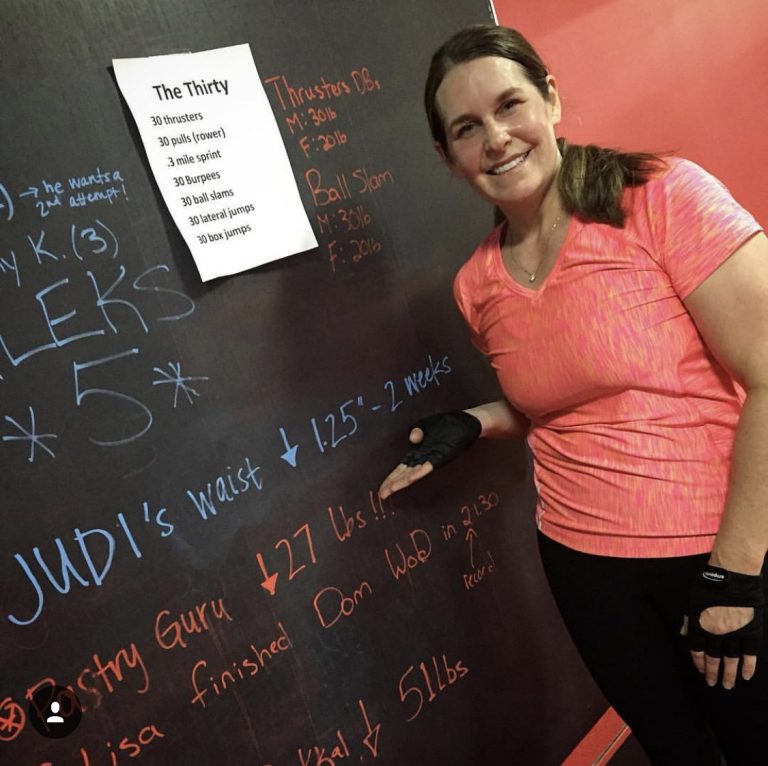 The Thirty
30 thrusters
30 pulls (rower)
.3 mile sprint
30 Burpees
30 ball slams
30 lateral jumps
30 box jumps
Thrusters DBs
M: 30lb
F: 20lb
Ball Slam
M: 30lb
F: 20lb
→ he wants a
2nd attempt!
K. (3)
LEKS
* 5 *
JUDI's waist ↓ 1.25" - 2 weeks
Pastry Guru ↓ 27 lbs!!!
Lisa finished Dom WoD in 21:30
↑
record
↓ 51lbs